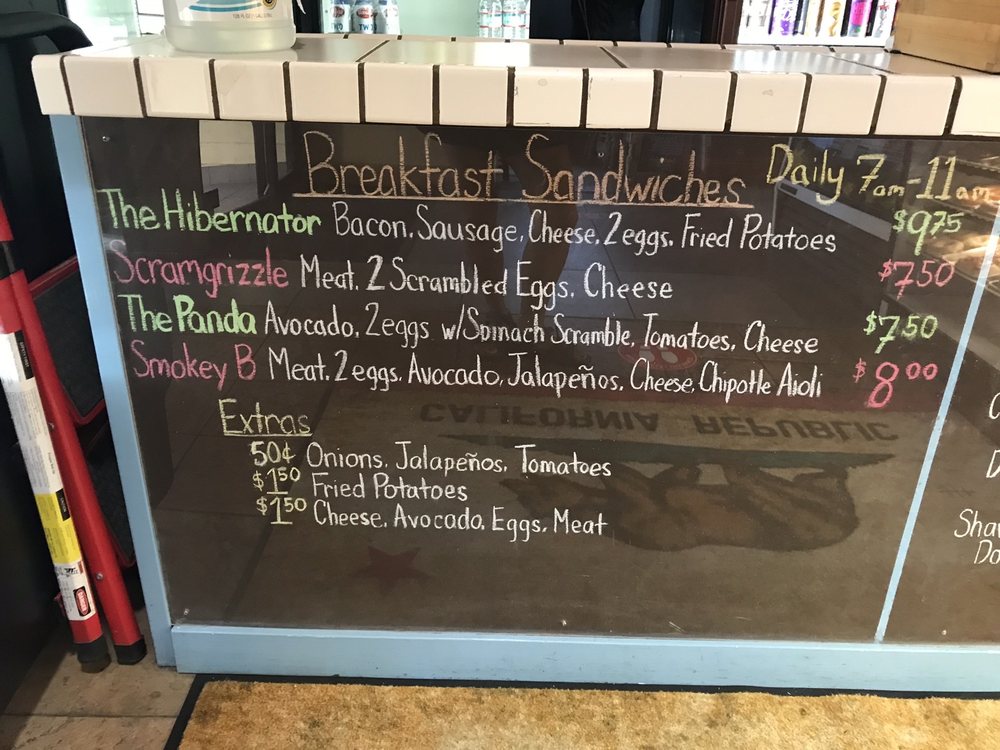 Breakfast Sandwiches Daily 7am-11am
The Hibernator Bacon, Sausage, Cheese, 2 eggs, Fried Potatoes $9.75
Scramgrizzle Meat, 2 Scrambled Eggs, Cheese $7.50
The Panda Avocado, 2 eggs w/Spinach Scramble, Tomatoes, Cheese $7.50
Smokey B Meat, 2 eggs, Avocado, Jalapeños, Cheese, Chipotle Aioli $8.00
CALIFORNIA REPUBLIC
Extras
50¢ Onions, Jalapeños, Tomatoes
$1.50 Fried Potatoes
$1.50 Cheese, Avocado, Eggs, Meat